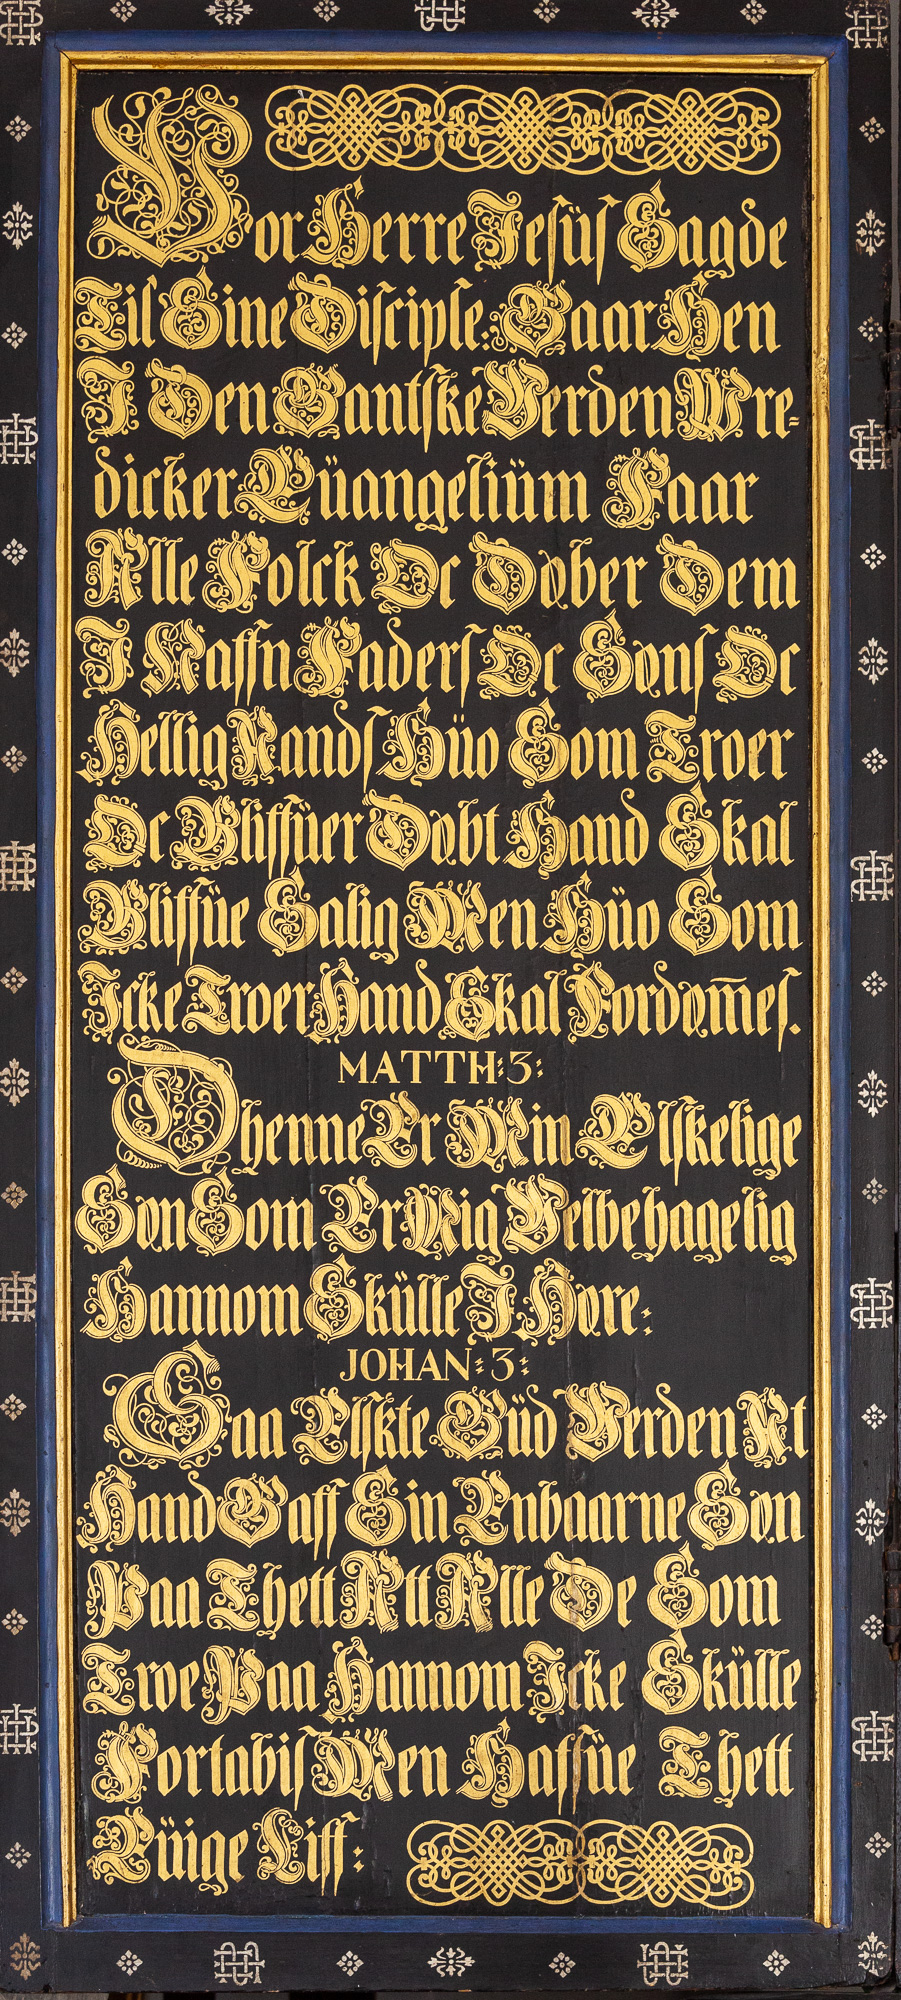 Vor Herre Jesüs Sagde
Til Sine Disciple: Gaar Hen
I Den Gantske Verden Præ=
dicker Eüangeliüm Faar
Alle Folck Oc Døber Dem
I Naffn Faders Oc Søns Oc
Hellig Aands Hüo Som Troer
Oc Bliffüer Døbt Hand Skal
Bliffüe Salig Men Hüo Som
Icke Troer Hand Skal Fordøm̅es.
MATTH:3:
Thenne Er Min Elskelige
Søn Som Er Mig Velbehagelig
Hannom Skülle I Høre:
JOHAN:3:
Saa Elskte Güd Verden At
Hand Gaff Sin Enbaarne Søn
Paa Thett Att Alle De Som
Troe Paa Hannom Icke Skülle
Fortabis Men Haffüe Thett
Eüige Liff: